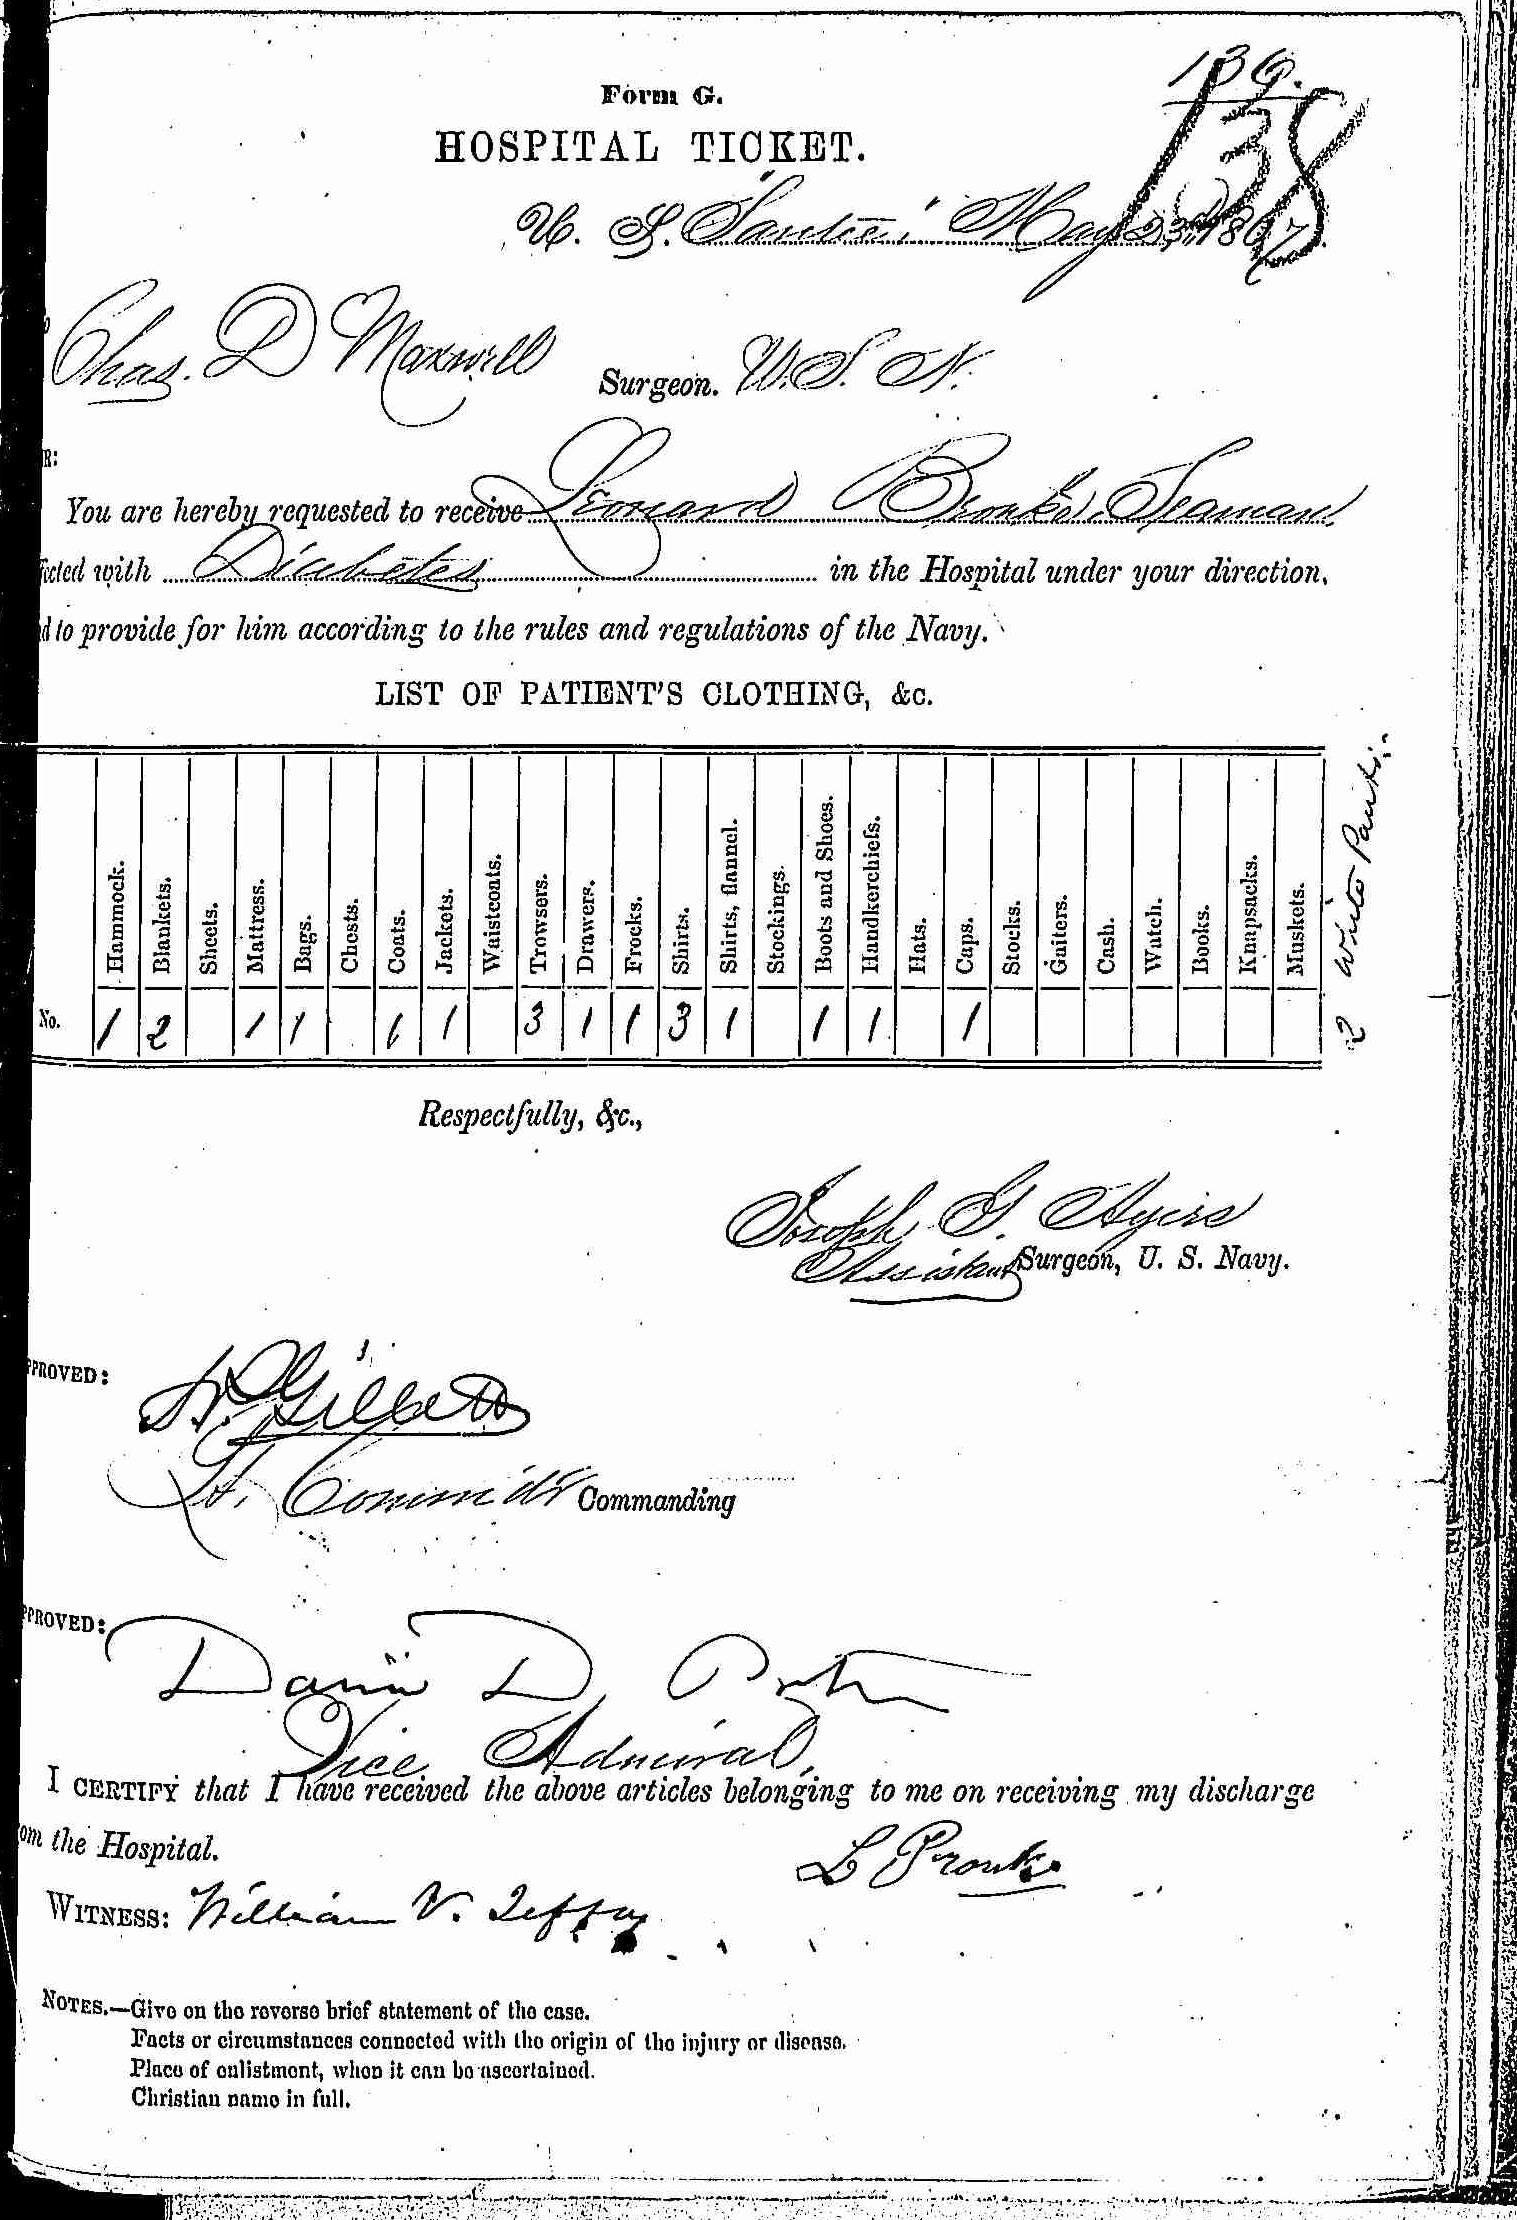 136.
138
Form G.
HOSPITAL TICKET.
U. S. "Santee," May 23, 1867.
Chas. D Maxwell Surgeon. U. S. N.
R:
You are hereby requested to receive Leonard Pronke, Seaman
ected with Diabetes in the Hospital under your direction,
d to provide for him according to the rules and regulations of the Navy.
LIST OF PATIENT'S CLOTHING, &c.
Hammock. Blankets. Sheets. Mattress. Bags. Chests. Coats. Jackets. Waistcoats. Trowsers. Drawers. Frocks. Shirts. Shirts, flannel. Stockings. Boots and Shoes. Handkerchiefs. Hats. Caps. Stocks. Gaiters. Cash. Watch. Books. Knapsacks. Muskets.
No. 1 2 1 1 1 1 3 1 1 3 1 1 1 1
2 White Pants.
Respectfully, &c.,
Joseph G. Ayers
Assistant Surgeon, U. S. Navy.
PPROVED:
Gillett
Lt. Comm'dr Commanding
PPROVED:
David D. Porter
Vice Admiral,
I CERTIFY that I have received the above articles belonging to me on receiving my discharge
om the Hospital.
L Pronke
WITNESS: William V.
NOTES.—Give on the reverse brief statement of the case.
Facts or circumstances connected with the origin of the injury or disease.
Place of enlistment, when it can be ascertained.
Christian name in full.